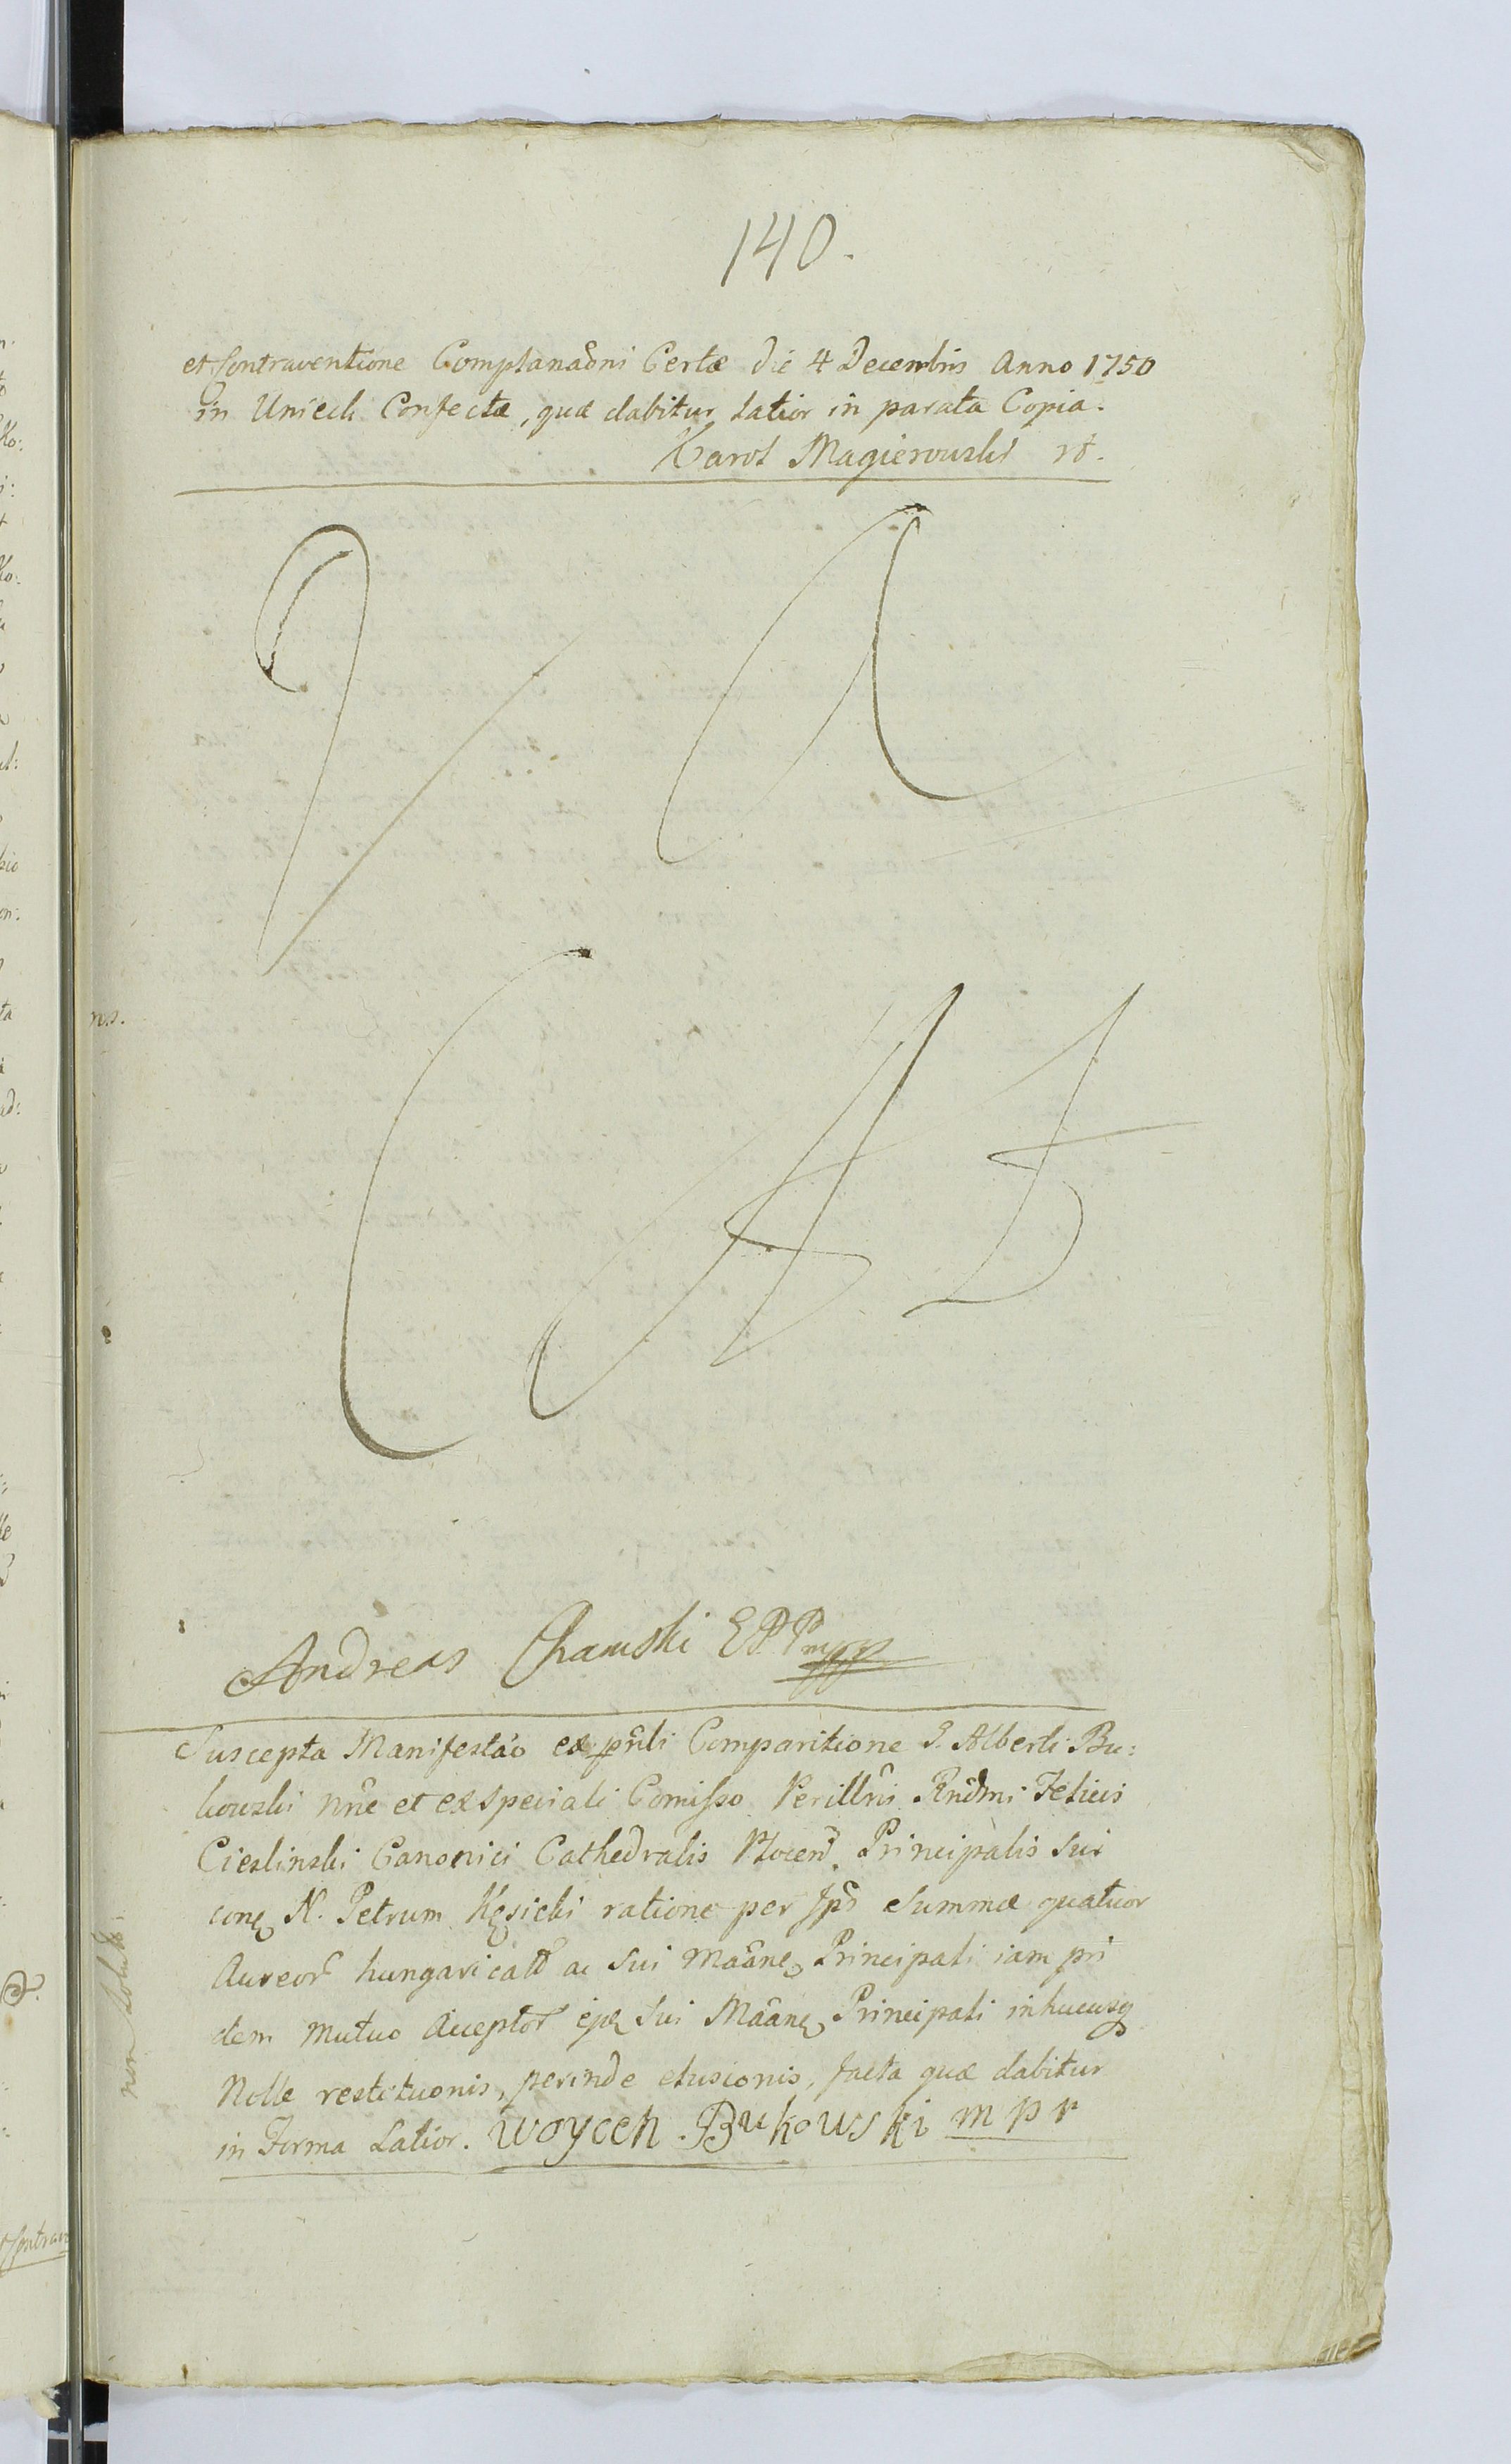 140.
et Contraventione Complanaõni Certæ die 4 Decembris Anno 1750
in Unieck Confectæ, quæ dabitur latior in parata Copia.
Karol Magierowski
V A
C A T
Andreas Chamski EPP mpp
Suscepta Manifestão ex pñli Comparitione G. Alberti Bu:
kowski nñe et ex speciali Comisso Perillris Rñdmi Felicis
Cieslinski Canonici Cathedralis Plocen. Principalis sui
conq N. Petrum Kęsicki ratione per Ips Summæ quatuor
Aureor hungaricał a sui Maãneq Principali iam pri
dem mutuo Acceptor ejq sui Maãneq Principali inhucusq
Nolle restituonis, perinde elusionis, facta quæ dabitur
in Forma Latior. Woycek Bukowski mpr
non solut.